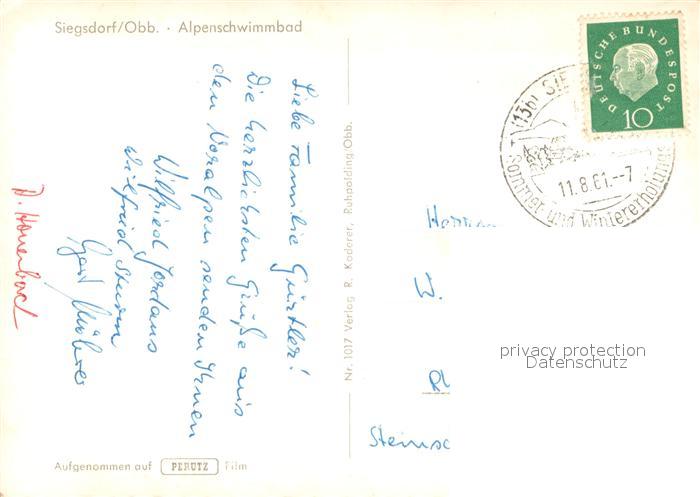 Siegsdorf/Obb. · Alpenschwimmbad
Liebe Familie Gürtler!
Die herzlichsten Grüße aus
den Voralpen senden Ihnen
Wilfried Jordans
Wilfried Sturm
Gerd
Aufgenommen auf PERUTZ Film
Nr. 1017 Verlag R. Koderer, Ruhpolding/Obb.
DEUTSCHE BUNDESPOST
10
(13b) SIE
11.8.61.--7
Sommer und Wintererholung
Herrn
privacy protection
Datenschutz